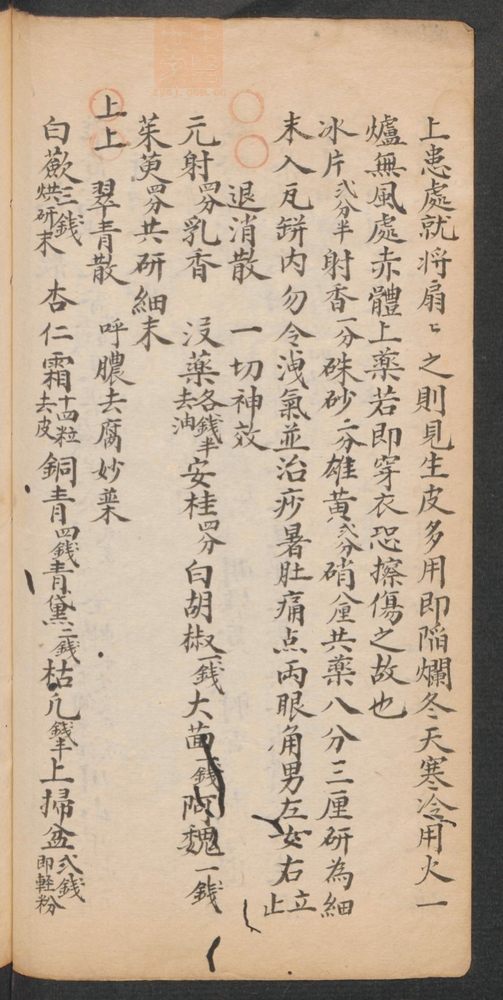 上患處就将扇〻之則見生皮多用即陷爛冬天寒冷用火一
爐無風處赤體上藥若即穿衣恐擦傷之故也
冰片弍分半射香一分硃砂二分雄黃弍分硝厘共藥八分三厘研為細
末入瓦缾内勿令洩氣並治痧暑肚痛点両眼角男左女右立止
退消散 一切神效
元射四分乳香 沒藥各錢半去油安桂四分白胡椒一錢大茴一錢阿魏一錢
茱萸四分共研細末
上上 翠青散 呼膿去腐妙薬
白蘞三錢烘研末 杏仁霜十四粒去皮銅青四錢青黛二錢枯凢錢半上掃盆弍錢即軽粉